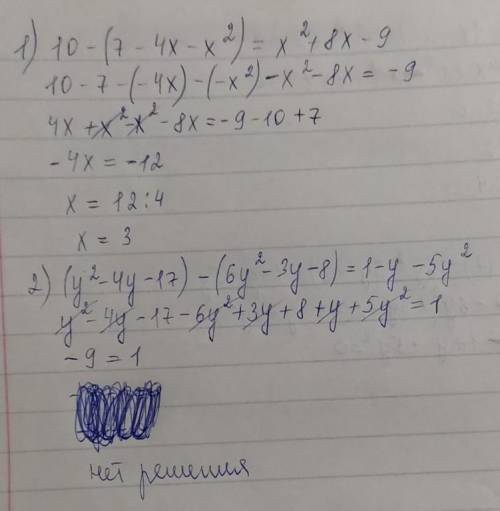 1) 10 - (7 - 4x - x²) = x² + 8x - 9
10 - 7 - (-4x) - (-x²) - x² - 8x = -9
4x + x² - x² - 8x = -9 - 10 + 7
-4x = -12
x = 12 : 4
x = 3
2) (y² - 4y - 17) - (6y² - 3y - 8) = 1 - y - 5y²
y² - 4y - 17 - 6y² + 3y + 8 + y + 5y² = 1
-9 = 1
нет решения